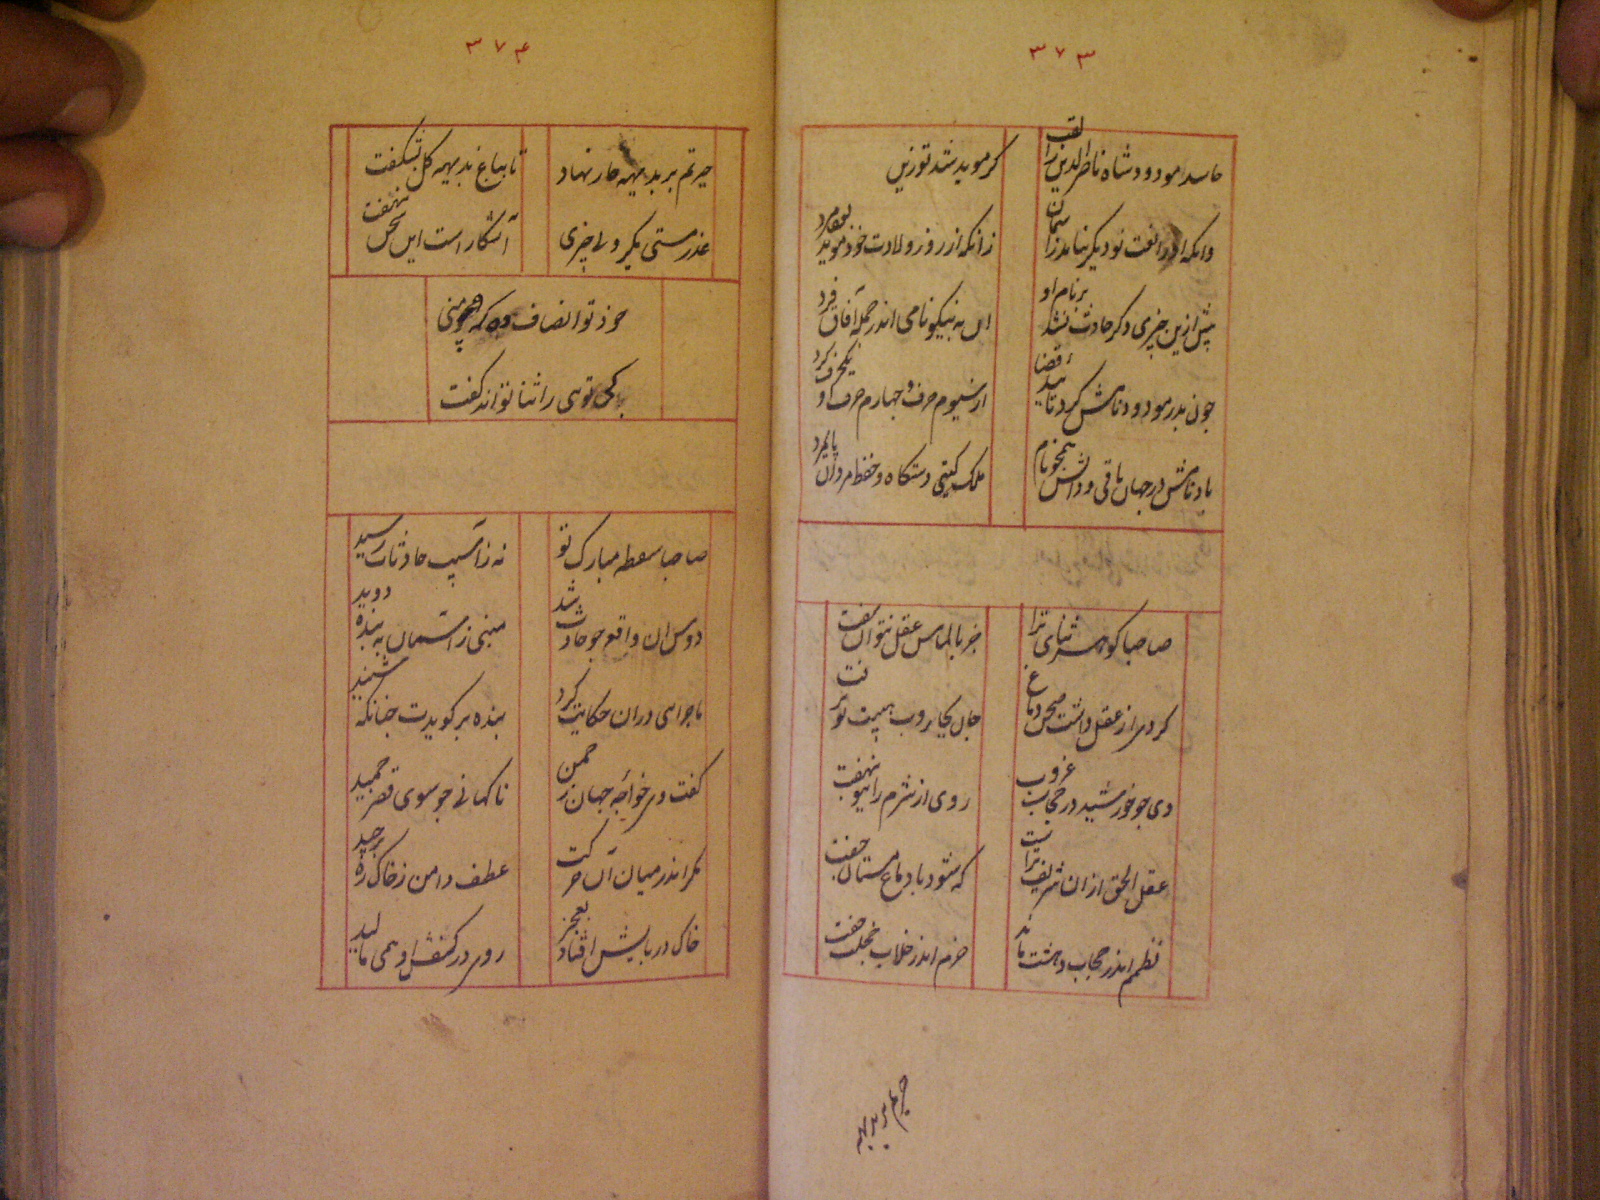 ۳۷۳
حاسدا مودود شاه ناصرالدین را لقب
گر موید شد تو زین
وانکه او را نعت نو دیگر نیامد ز آسمان
زانکه از روز ولادت خود موید
پیش ازین چیزی دگر حادث نشد بر نام او
آن به نیکو نامی اندر جمله آفاق فرد
چون پدر مودود نامش کرد تایید قضا
از سیوم حرف و چهارم حرف او یکحرف کرد
باد نامش در جهان باقی و ذاتش همچو نام
ملک گیتی دستگاه و حفظ مردان پایمرد
صاحبا گوهر ثنای ترا
جز بالماس عقل نتوان سفت
کردمی از عقل داشت صحن دماغ
جان بجاروب هیبت تو برفت
دی چو خورشید در حجاب غروب
روی از شرم رای تو بنهفت
عقل الحق از ان شریفتر است
که شود با دماغ مستان جفت
نظمم اندر حجاب دهشت ماند
خردم اندر خلاب خجلت خفت
حیرتم بر بدیهه
۳۷۴
حیرتم بر بدیهه خار نهاد
تا بباغ بدیهه گل نشکفت
عذر مستی مگیر و بی خبری
آشکار است این سخن نهفت
خود تو انصاف ده که همچو منی
چو توی را ثنا تواند گفت
صاحبا سقطه مبارک تو
نه ز آسیب حادثات رسید
دوش آن واقع چو حادث شد
منهی ز آسمان به بنده دوید
ماجرای دران حکایت کرد
بنده برگویدت چنانکه شنید
گفت دی خواجه جهان ز چمن
ناگهانی چو سوی قصر چمید
مگر اندر میان آن حرکت
عطف دامن ز خاک ره برچید
خاک در پایش افتاد بعجز
روی در کفش او همی مالید